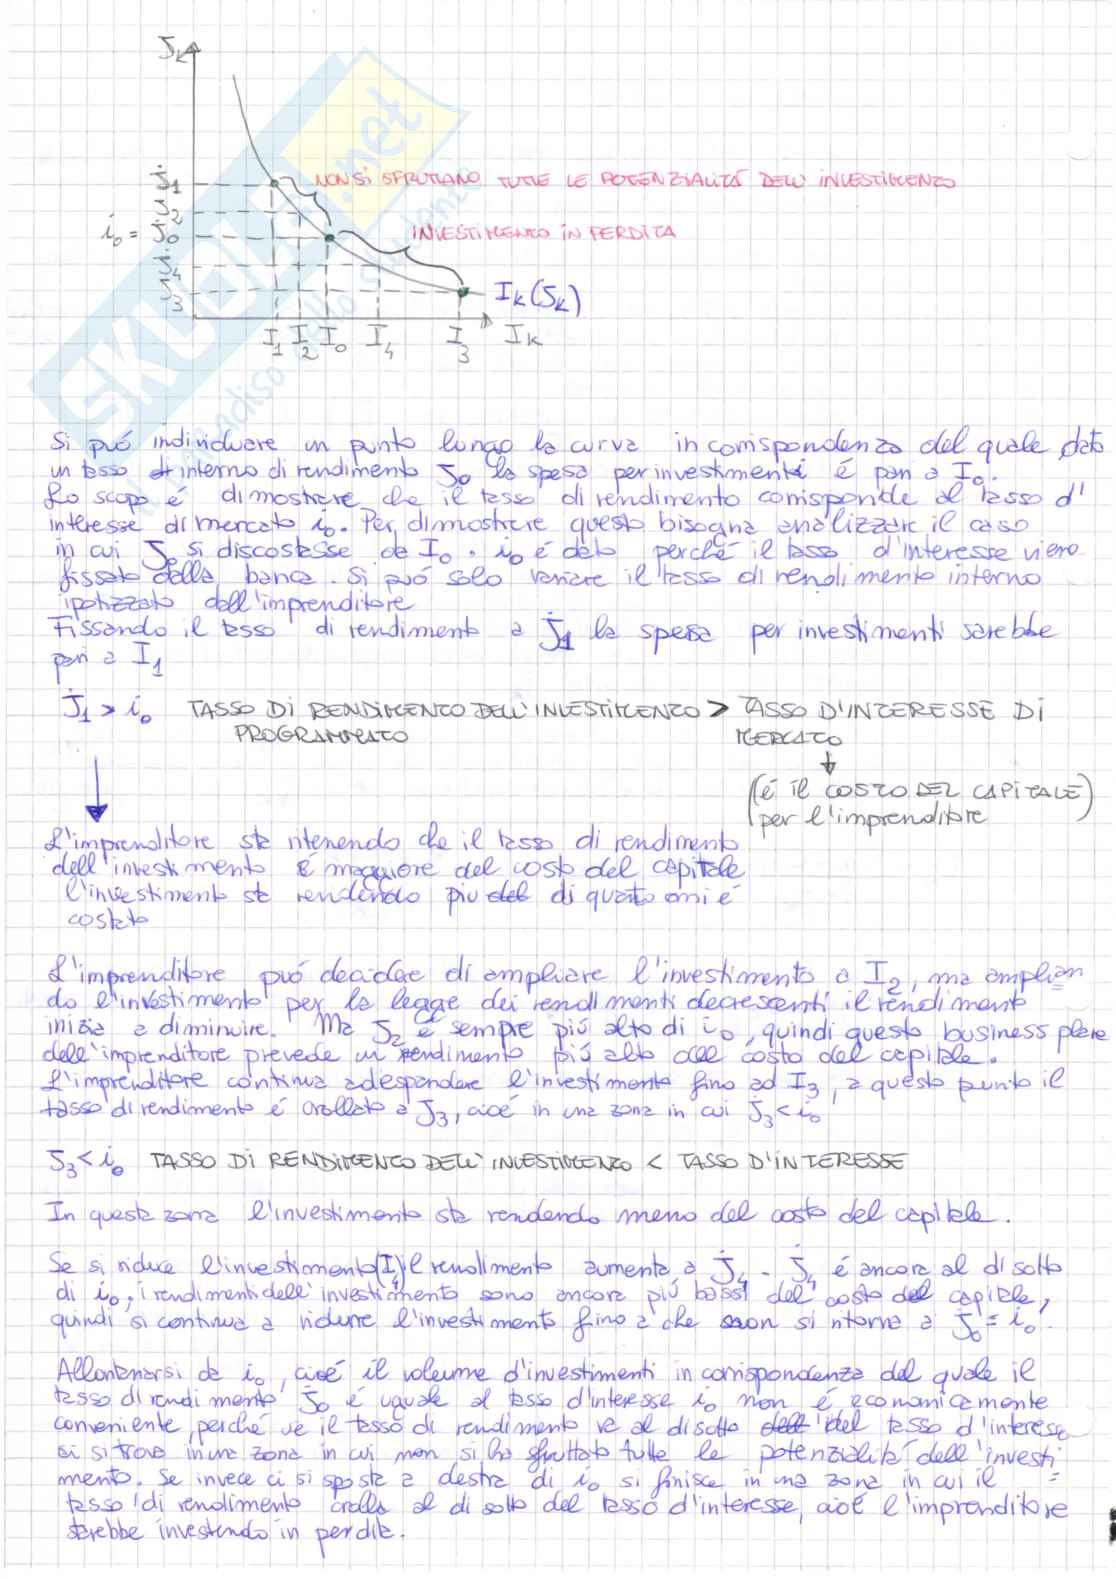 J_k
j_1
J_2
i_0 = J_0
J_4
J_3
NON SI SFRUTTANO TUTTE LE POTENZIALITÁ DELL'INVESTIMENTO
INVESTIMENTO IN PERDITA
I_k(J_k)
I_1 I_2 I_0 I_4 I_3 I_k
SKUOLA.net
Si puó individuare un punto lungo la curva in corrispondenza del quale dato
un tasso interno di rendimento J_0 la spesa per investimenti é pari a I_0.
Lo scopo é dimostrare che il tasso di rendimento corrisponde al tasso d'
interesse di mercato i_0. Per dimostrare questo bisogna analizzare il caso
in cui J_0 si discostasse da I_0. i_0 é dato perché il tasso d'interesse viene
fissato dalla banca. Si puó solo variare il tasso di rendimento interno
ipotizzato dall'imprenditore
Fissando il tasso di rendimento a j_1 la spesa per investimenti sarebbe
pari a I_1
J_1 > i_0 TASSO DI RENDIMENTO DELL'INVESTIMENTO > TASSO D'INTERESSE DI
PROGRAMMATO MERCATO
(é il COSTO DEL CAPITALE)
per l'imprenditore
L'imprenditore sta ritenendo che il tasso di rendimento
dell'investimento é maggiore del costo del capitale
l'investimento sta rendendo piu del di quanto mi é
costato
L'imprenditore puó decidere di ampliare l'investimento a I_2, ma amplian
do l'investimento per la legge dei rendimenti decrescenti il rendimento
inizia a diminuire. Ma J_2 é sempre piú alto di i_0, quindi questo business plane
dell'imprenditore prevede un rendimento piú alto del costo del capitale.
L'imprenditore continua ad espandere l'investimento fino ad I_3, a questo punto il
tasso di rendimento é crollato a J_3, cioé in una zona in cui j_3 < i_0
J_3 < i_0 TASSO DI RENDIMENTO DELL'INVESTIMENTO < TASSO D'INTERESSE
In questa zona l'investimento sta rendendo meno del costo del capitale.
Se si riduce l'investimento (I_4) il rendimento aumenta a j_4. j_4 é ancora al di sotto
di i_0, i rendimenti dell'investimento sono ancora piú bassi del costo del capitale,
quindi si continua a ridurre l'investimento fino a che non si ritorna a j_0 = i_0.
Allontanarsi da i_0, cioé il voleume d'investimenti in corrispondenza del quale il
tasso di rendimento j_0 é uguale al tasso d'interesse i_0 non é economicamente
conveniente, perché se il tasso di rendimento va al di sotto dell' del tasso d'interesse
ci si trova in una zona in cui non si ha sfruttato tutte le potenzialitá dell'investi
mento. Se invece ci si sposta a destra di i_0 si finisce in una zona in cui il
tasso di rendimento crolla al di sotto del tasso d'interesse, cioé l'imprenditore
sarebbe investendo in perdita.